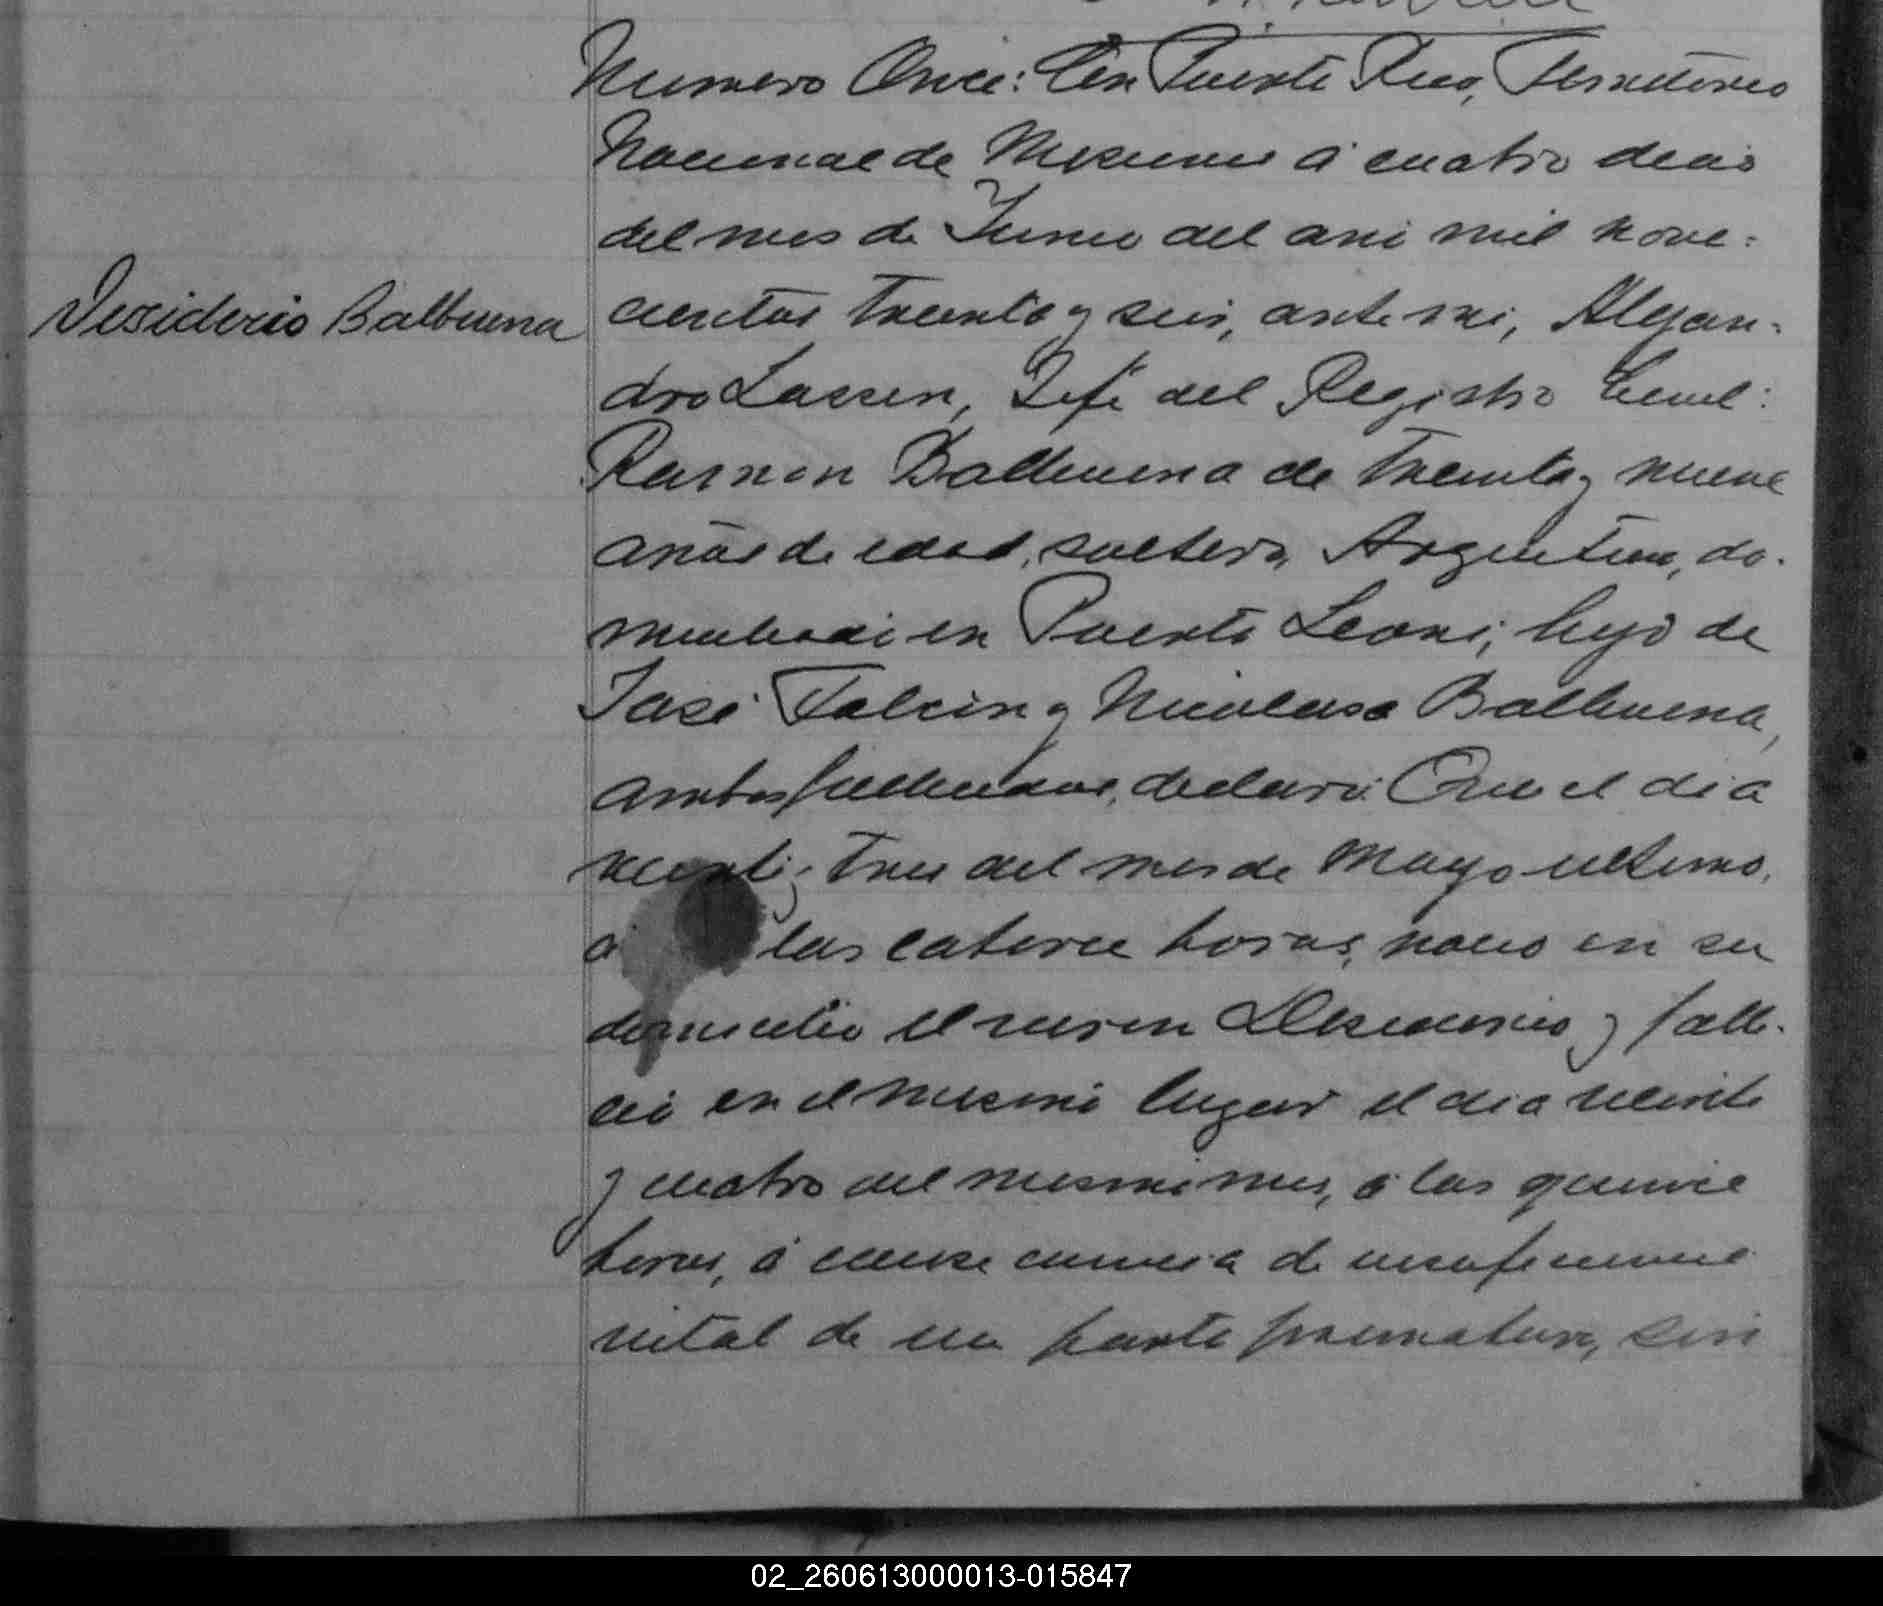 Numero Once: En Puerto Rico, Territorio
Nacional de Misiones á cuatro dias
del mes de Junio del año mil nove-
Desiderio Balbuena
cientos treinta y seis, ante mi, Alejan-
dro Lassen, Jefe del Registro Civil:
Ramon Balbuena de treinta y nueve
años de edad, soltero, Argentino, do-
miciliado en Puerto Leoni, hijo de
José Falcin y Nicolasa Balbuena,
ambos fallecidos, declaró: Que el dia
veinti y tres del mes de Mayo ultimo,
á las catorce horas, nacio en su
domicilio el varon Desiderio y falle-
ció en el mismo lugar el dia veinte
y cuatro del mismo mes, á las quince
horas, á consecuencia de insuficiencia
vital de un parto prematuro, sin
02_260613000013-015847